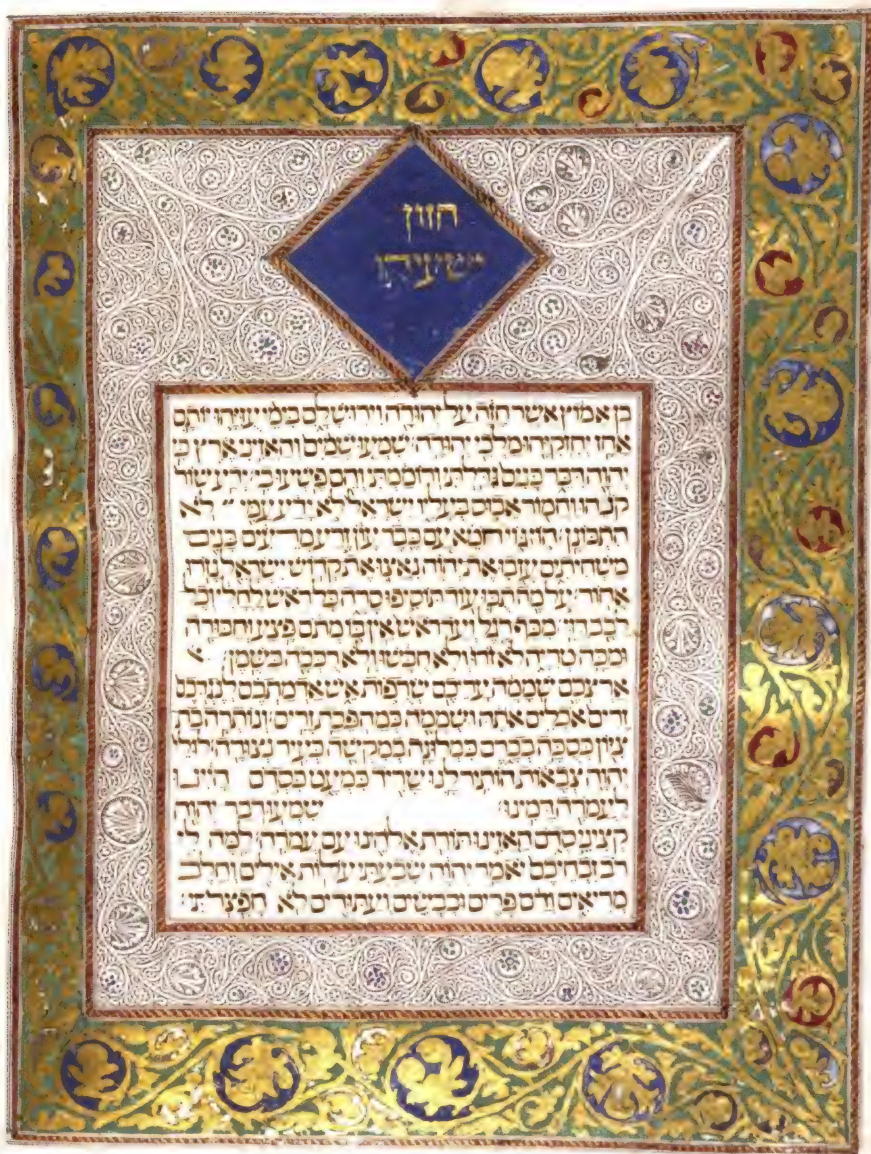 חזון
ישעיהו
בן אמוץ אשר חזה על יהודה וירושלם בימי עזיהו יותם
אחז יחזקיהו מלכי יהודה שמעו שמים והאזיני ארץ כי
יהוה דבר בנים גדלתי ורוממתי והם פשעו בי ידע שור
קנהו וחמור אבוס בעליו ישראל לא ידע עמי לא
התבונן הוי גוי חטא עם כבד עון זרע מרעים בנים
משחיתים עזבו את יהוה נאצו את קדוש ישראל נזרו
אחור על מה תכו עוד תוסיפו סרה כל ראש לחלי וכל
לבב דוי מכף רגל ועד ראש אין בו מתם פצע וחבורה
ומכה טריה לא זרו ולא חבשו ולא רככה בשמן
ארצכם שממה עריכם שרפות אש אדמתכם לנגדכם
זרים אכלים אתה ושממה כמהפכת זרים ונותרה בת
ציון כסכה בכרם כמלונה במקשה כעיר נצורה לולי
יהוה צבאות הותיר לנו שריד כמעט כסדם היינו
לעמרה דמינו שמעו דבר יהוה
קציני סדם האזינו תורת אלהינו עם עמרה למה לי
רב זבחיכם יאמר יהוה שבעתי עלות אילים וחלב
מריאים ודם פרים וכבשים ועתודים לא חפצתי